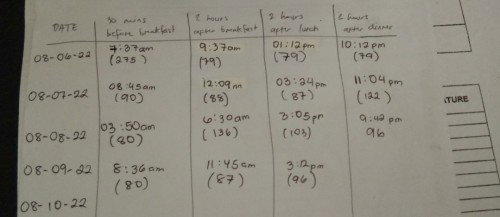 DATE 30 mins before breakfast 2 hours after breakfast 2 hours after lunch 2 hours after dinner
08-06-22 7:37am 9:37am 01:12pm 10:12pm
(275) (79) (79) (79)
08-07-22 08:45am 12:09nn 03:24pm 11:04pm
(90) (88) (87) (122)
08-08-22 03:50am 6:30am 3:05pm 9:42pm
(80) (136) (103) 96
08-09-22 8:36am 11:45am 3:12pm
(80) (87) (96)
08-10-22
TURE